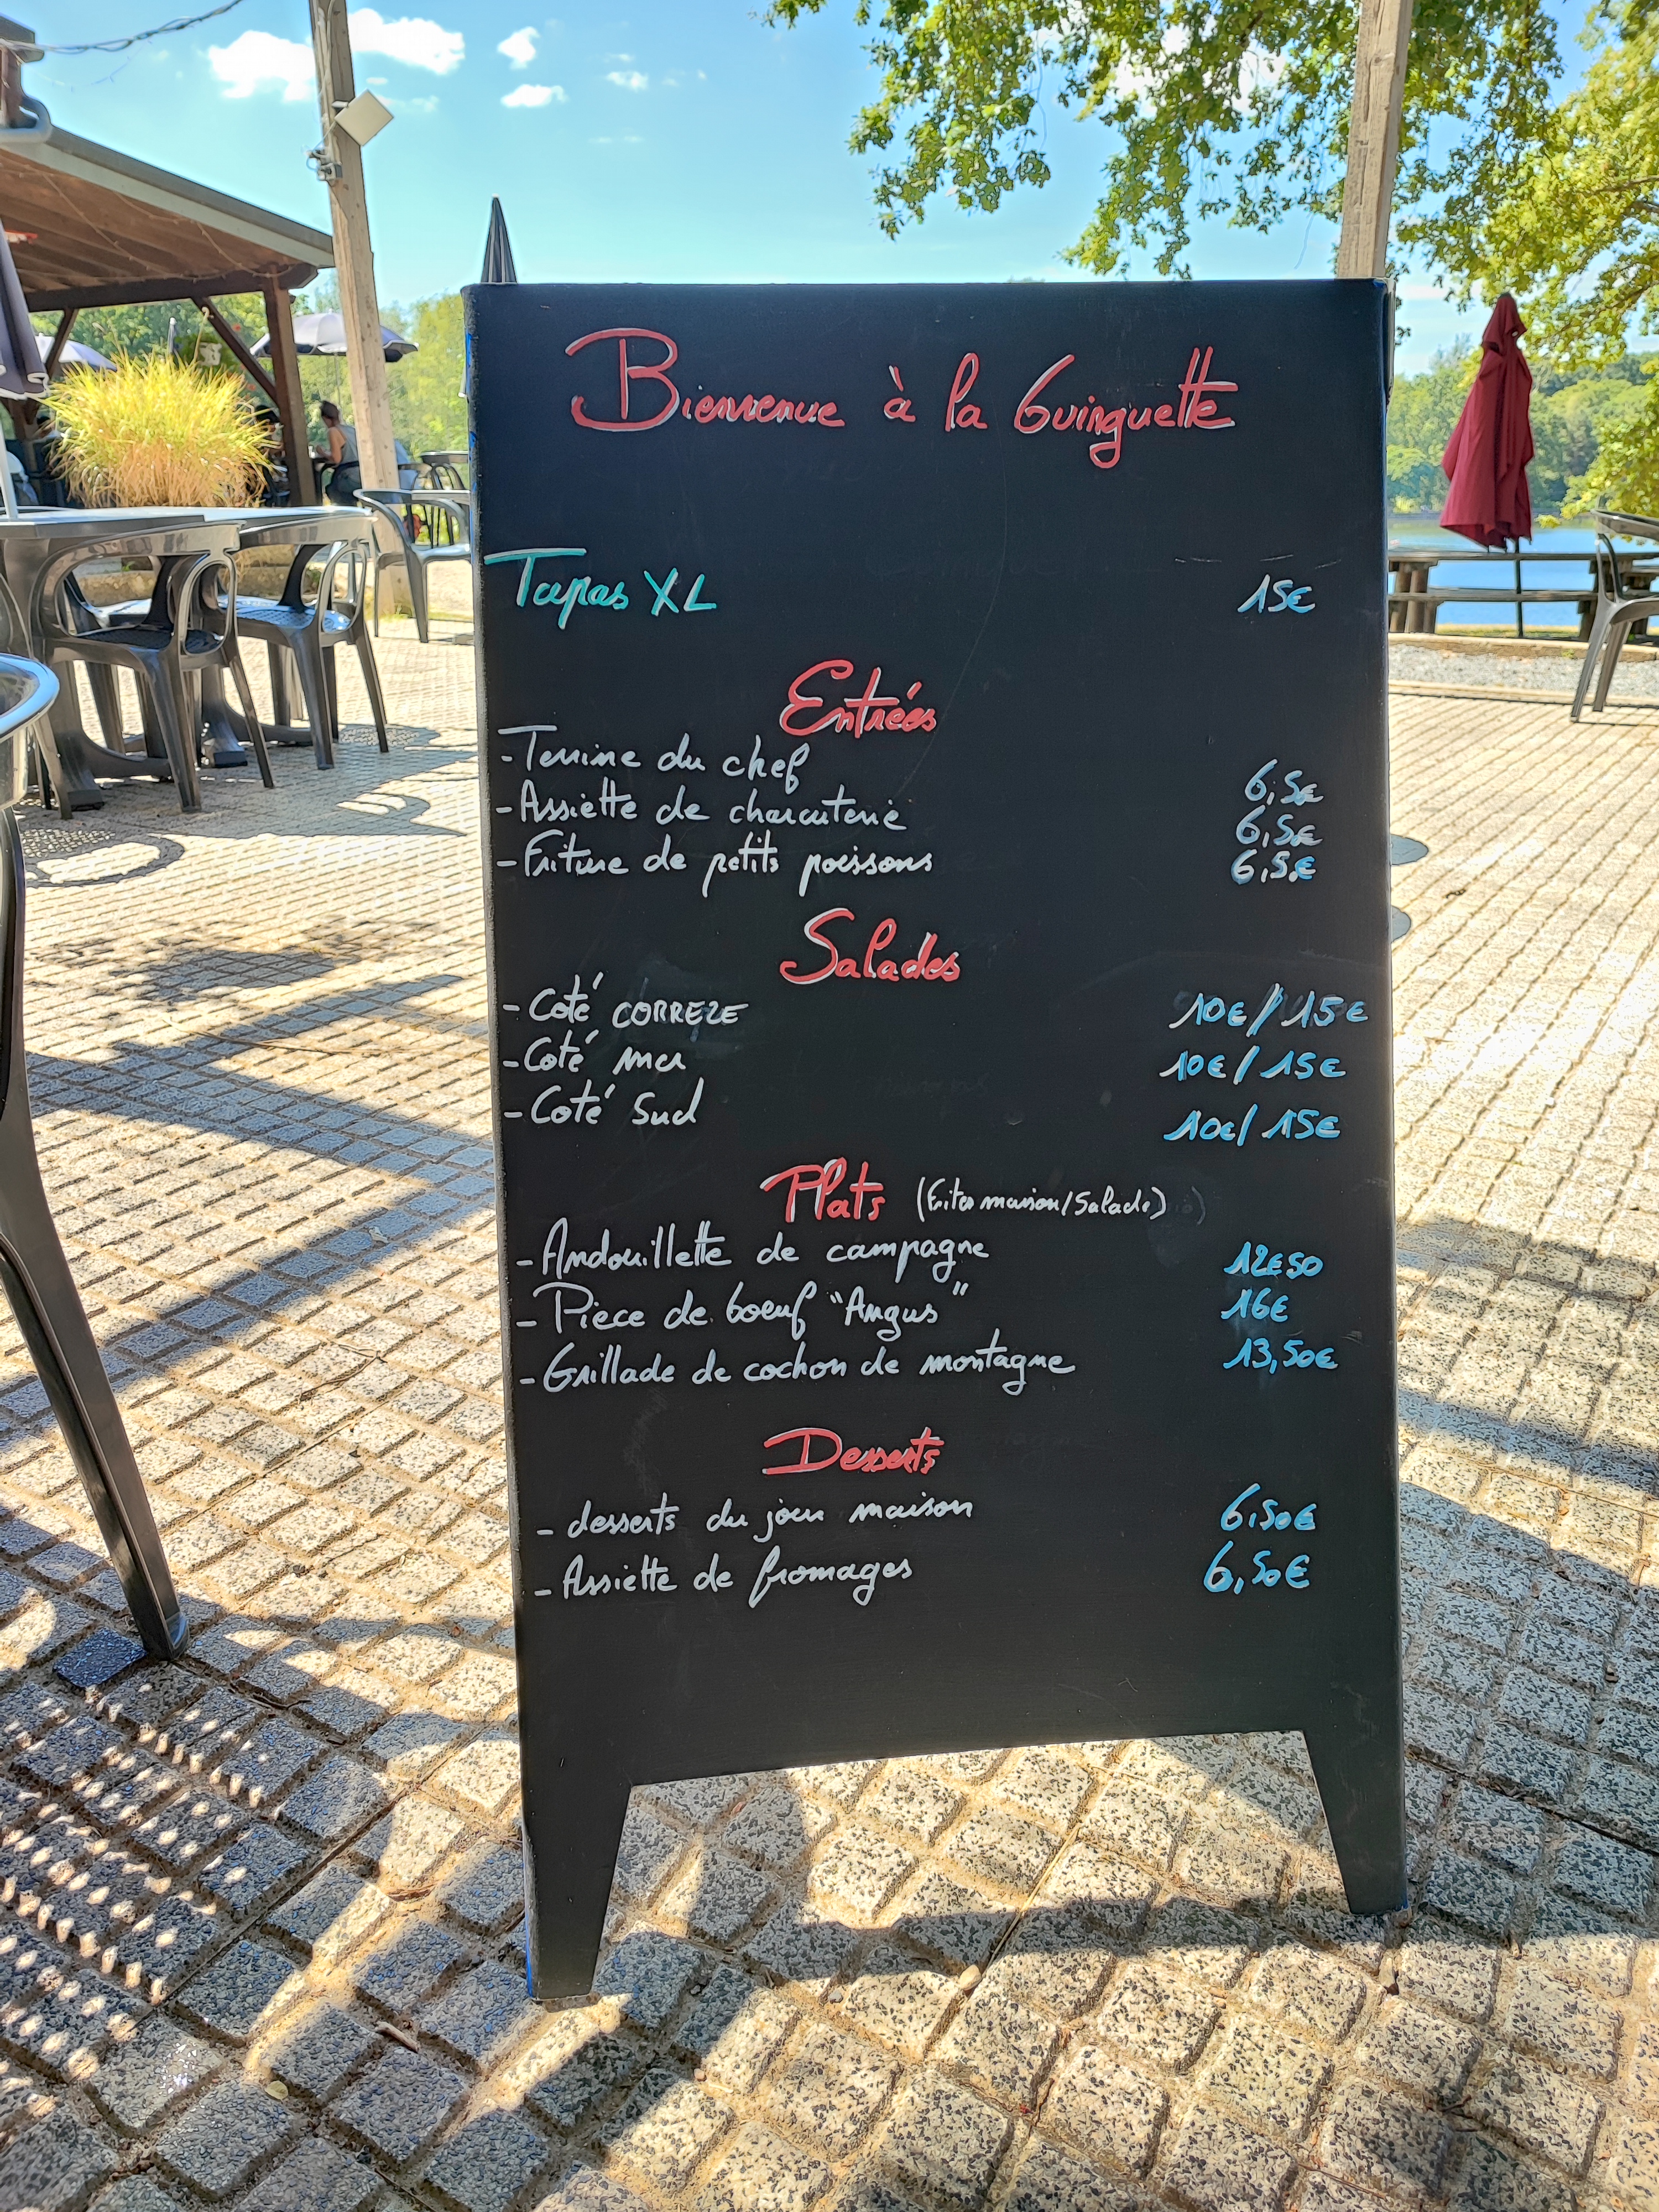 Bienvenue à la Guinguette
Tapas XL 15€
Entrées
- Terrine du chef 6,5€
- Assiette de charcuterie 6,5€
- Friture de petits poissons 6,5€
Salades
- Coté CORREZE 10€/15€
- Coté mer 10€/15€
- Coté Sud 10€/15€
Plats (Frites maison/Salade)
- Andouillette de campagne 12€50
- Piece de boeuf "Angus" 16€
- Grillade de cochon de montagne 13,50€
Desserts
- desserts du jour maison 6,50€
- Assiette de fromages 6,50€